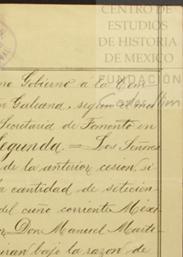 CENTRO DE
ESTUDIOS
DE HISTORIA
DE MEXICO
FUNDACIÓN
no Gobierno á la Com
n Galeana, segun
Secretaria de Fomento en
Segunda = Los Señores
de la anterior cesion, á
la cantidad de setecien
del cuño corriente Mexi
Don Manuel Marti
bajo la razon de